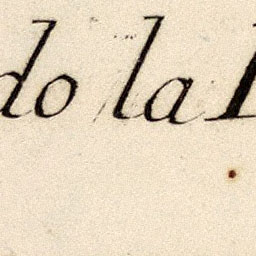 do la